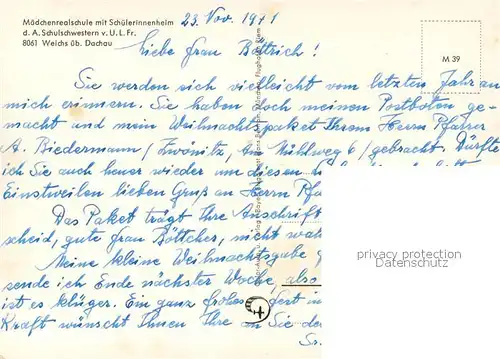 Mädchenrealschule mit Schülerinnenheim
d. A. Schulschwestern v. U. L. Fr.
8061 Weichs üb. Dachau
23. Nov. 1971
M 39
Liebe Frau Böttrich!
Sie werden sich vielleicht vom letzten Jahr an
mich erinnern. Sie haben doch meinen Postboten ge-
macht und mein Weihnachtspaket Ihrem Herrn Pfarrer
A. Biedermann / Zwönitz, Am Mühlweg 6 / gebracht. Dürfte
ich Sie auch heuer wieder um diesen
Einstweilen lieben Gruß an Herrn Pfa
Das Paket trägt Ihre Anschrift
scheid, gute Frau Böttcher, nicht wah
Meine kleine Weihnachtsgabe
sende ich Ende nächster Woche, also
ist es klüger. Ein ganz frohes fest in
Kraft wünscht Ihnen Ihre an Sie de
Sr.
privacy protection
Datenschutz